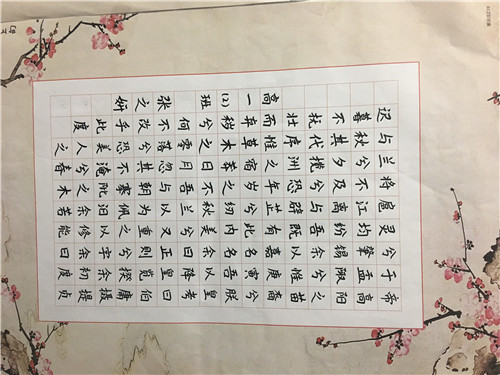 帝高阳之苗裔兮朕皇考曰伯庸摄提贞
于孟陬兮惟庚寅吾以降皇览揆余初度
兮肇锡余以嘉名名余曰正则兮字余曰
灵均纷吾既有此内美兮又重之以修能
扈江离与辟芷兮纫秋兰以为佩汩余若
将不及兮恐年岁之不吾与朝搴阰之木
兰兮夕揽洲之宿莽日月忽其不淹兮春
与秋其代序惟草木之零落兮恐美人之
迟暮不抚壮而弃秽兮何不改乎此度
高一(2)班 张妍